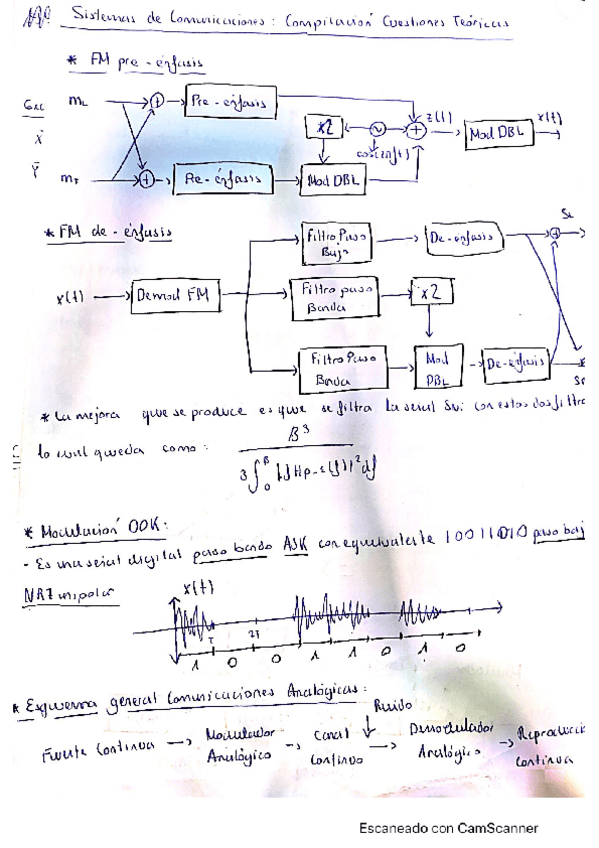 Sistemas de Comunicaciones: Compilación Cuestiones Teóricas
* FM pre-énfasis
mL + Pre-énfasis x2 ~ + z(t) Mod DBL x(t)
cos(2πft)
+ Pre-énfasis Mod DBL
* FM de-énfasis
Filtro Paso Bajo De-énfasis +
x(t) Demod FM Filtro paso Banda x2
Filtro Paso Banda Mod DBL De-énfasis
* La mejora que se produce es que se filtra la señal con estos dos filtro
lo cual queda como: B³
3∫₀ᴮ
* Modulación OOK:
- Es una señal digital paso banda ASK con equivalente 10011010 paso baj
NRZ unipolar
x(t)
T 2T
1 0 0 1 1 0 1 0
* Esquema general Comunicaciones Analógicas:
Ruido
Fuente Continua → Modulador Analógico → Canal Continuo → Demodulador Analógico → Reproducci Continua
Escaneado con CamScanner